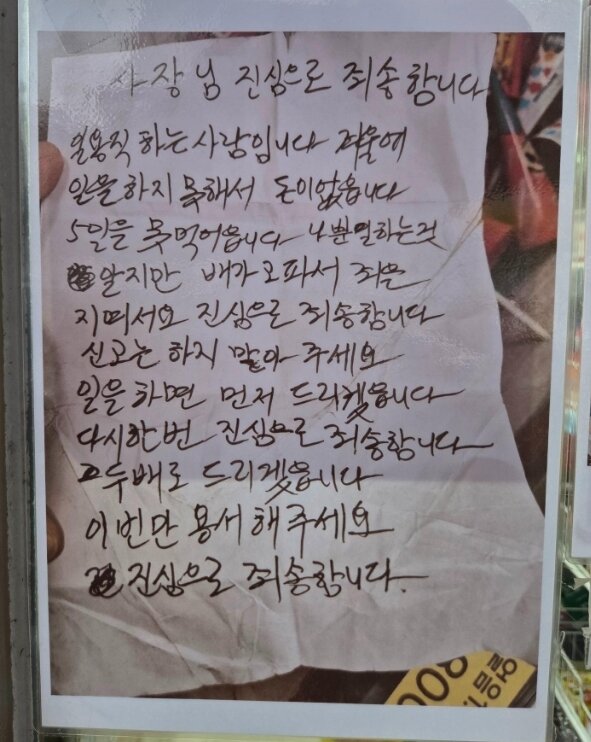 사장님 진심으로 죄송합니다
일용직 하는 사람입니다 겨울에
일을 하지 못해서 돈이없읍니다
5일을 못먹어읍니다 나뿐일하는것
알지만 배가오파서 죄은
지떠서요 진심으로 죄송합니다
신고는 하지 말아 주세요
일을하면 먼저 드리켔읍니다
다시한번 진심으로 죄송합니다
두배로 드리겠읍니다
이번만 용서해주세요
진심으로 죄송합니다.
008